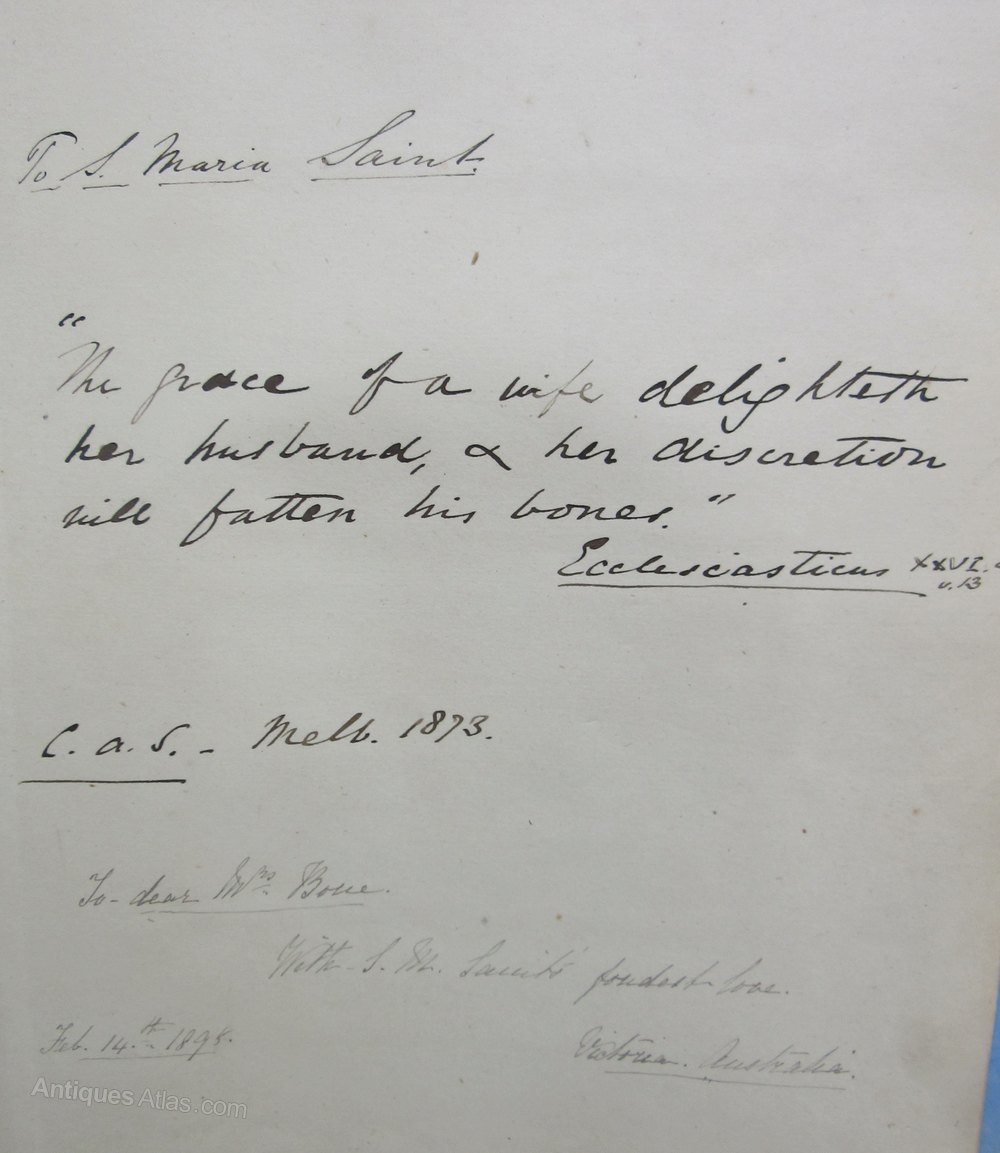 To S. Maria Saint.
"
The grace of a wife delighteth
her husband, & her discretion
will fatten his bones."
Ecclesiasticus XXVI.
v. 13
C. A. S. - Melb. 1873.
To dear Mrs Bone.
With S. M. Saint's fondest love.
Feb. 14th 1895.
Victoria. Australia.
Antiques Atlas.com